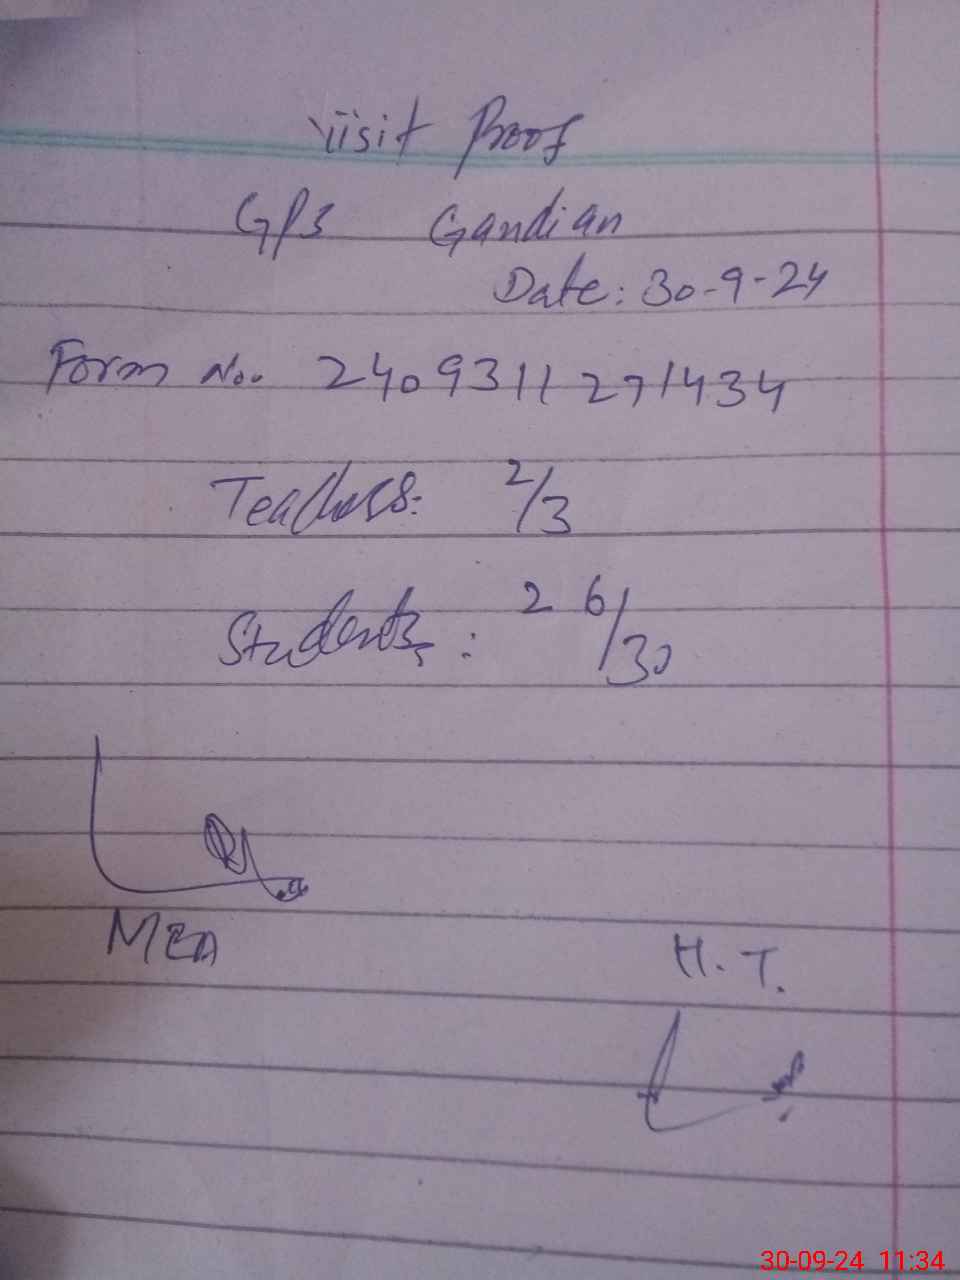 Visit Proof
GPS Gandian
Date: 30-9-24
Form No. 2409311271434
Teachers: 2/3
Students: 26/30
MEA
H.T.
30-09-24 11:34